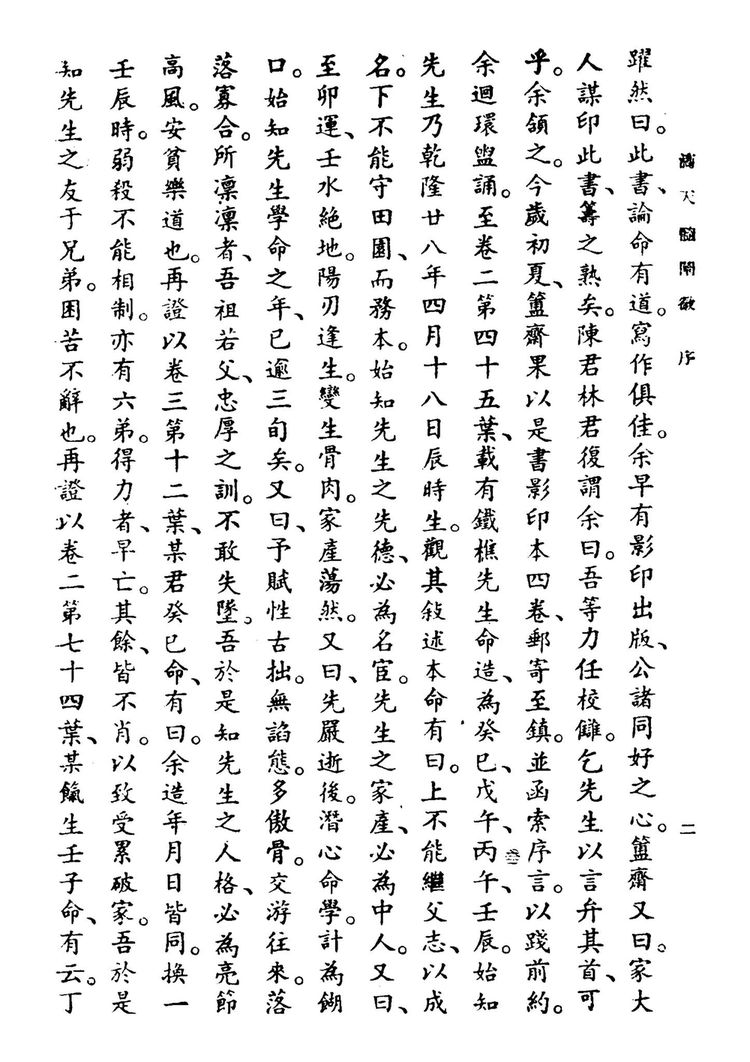 滴天髓闡微 序 二
躍然曰。此書、論命有道。寫作俱佳。余早有影印出版、公諸同好之心。簠齋又曰。家大
人謀印此書、籌之熟矣。陳君林君復謂余曰。吾等力任校讎。乞先生以言弁其首、可
乎。余頷之。今歲初夏、簠齋果以是書影印本四卷、郵寄至鎮。並函索序言。以踐前約。
余迴環盥誦。至卷二第四十五葉、載有鐵樵先生命造、為癸巳、戊午、丙午、壬辰。始知
先生乃乾隆廿八年四月十八日辰時生。觀其敍述本命有曰。上不能繼父志、以成
名。下不能守田園、而務本。始知先生之先德、必為名宦。先生之家產、必為中人。又曰、
至卯運、壬水絕地。陽刃逢生。變生骨肉。家產蕩然。又曰、先嚴逝後。潛心命學。計為餬
口。始知先生學命之年、已逾三旬矣。又曰、予賦性古拙。無諂態。多傲骨。交游往來。落
落寡合。所凜凜者、吾祖若父、忠厚之訓。不敢失墜。吾於是知先生之人格、必為亮節
高風。安貧樂道也。再證以卷三第十二葉、某君癸巳命、有曰。余造年月日皆同。換一
壬辰時。弱殺不能相制。亦有六弟。得力者、早亡。其餘、皆不肖。以致受累破家。吾於是
知先生之友于兄弟。困苦不辭也。再證以卷二第七十四葉、某餼生壬子命、有云。丁